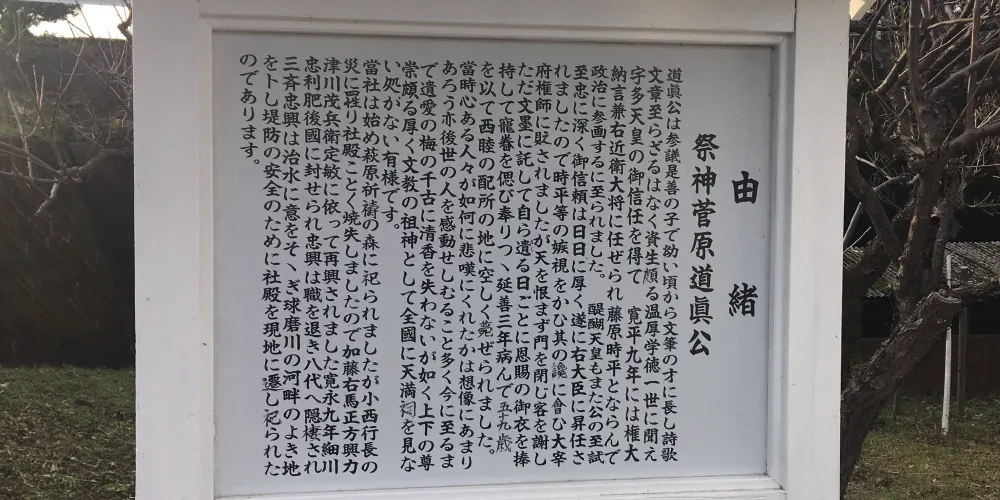 由緒
祭神菅原道眞公
道眞公は参議是善の子で幼い頃から文筆の才に長し詩歌
文章至らざるはなく資生頗る温厚学徳一世に聞え
宇多天皇の御信任を得て　寛平九年には権大
納言兼右近衛大将に任ぜられ藤原時平とならんで
政治に参画するに至られました。　醍醐天皇もまた公の至誠
至忠に深く御信頼は日日に厚く遂に右大臣に昇任さ
れましたので時平等の嫉視をかひ其の讒に會ひ大宰
府権師に貶されましたが天を恨まず門を閉じ客を謝し
ただ文墨に託して自ら遺る日ごとに恩賜の御衣を捧
持して寵眷を偲び奉りつゝ延善三年病んで五九歳
を以て西睦の配所の地に空しく薨ぜられました。
當時心ある人々が如何に悲嘆にくれたかは想像にあまり
あろう亦後世の人を感動せしむること多く今に至るま
で遺愛の梅の千古に清香を失わないが如く上下の尊
崇頗る厚く文教の祖神として全國に天満祠を見な
い処がない有様です。
當社は始め萩原祈祷の森に祀られましたが小西行長の
災に罹り社殿ことく焼失しましたので加藤右馬正方興力
津川茂兵衛定敏に依って再興されました寛永九年細川
忠利肥後國に封せられ忠興は職を退き八代へ隠棲され
三斉忠興は治水に意をそゝぎ球磨川の河畔のよき地
をト し堤防の安全のために社殿を現地に遷し祀られた
のであります。